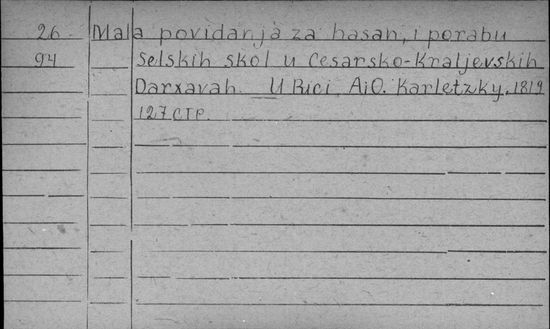 26 Mala povidanja za hasan, i porabu
94 Selskih skol u Cesarsko-Kraljevskih
Darxavah. U Rici, A.i O. Karletzky, 1819
127 стр.